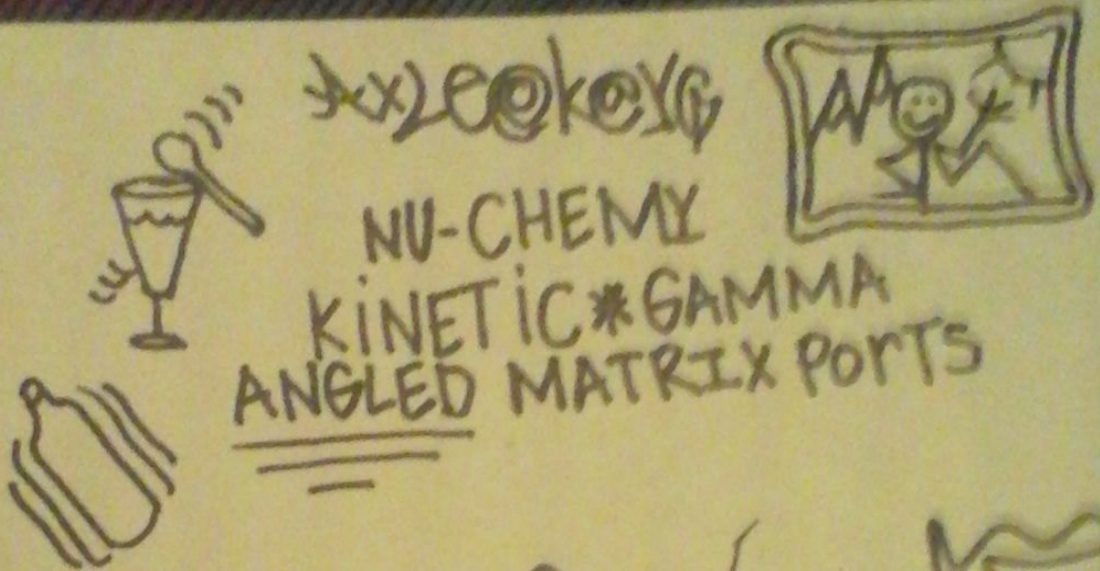 NU-CHEMY
KiNETiC*GAMMA
ANGLED MATRIX PorTS